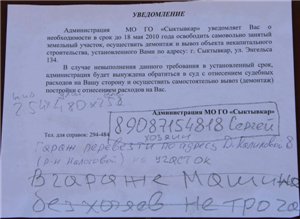 УВЕДОМЛЕНИЕ
Администрация МО ГО «Сыктывкар» уведомляет Вас о
необходимости в срок до 18 мая 2010 года освободить самовольно занятый
земельный участок, осуществить демонтаж и вывоз объекта некапитального
строительства, установленного Вами по адресу: г. Сыктывкар, ул. Энгельса
134.
В случае невыполнения данного требования в установленный срок,
администрация будет вынуждена обратиться в суд с отнесением судебных
расходов на Вашу сторону и осуществить самостоятельно вывоз (демонтаж)
постройки с отнесением расходов на Вас.
Администрация МО ГО «Сыктывкар»
89087154818 Сергей
Тел. для справок: 294-484
хозяин
Гараж перевезти по адресу Д. Каликовой
(р-н Налоговой) на участок
В гараже Машина
без хозяев не трога